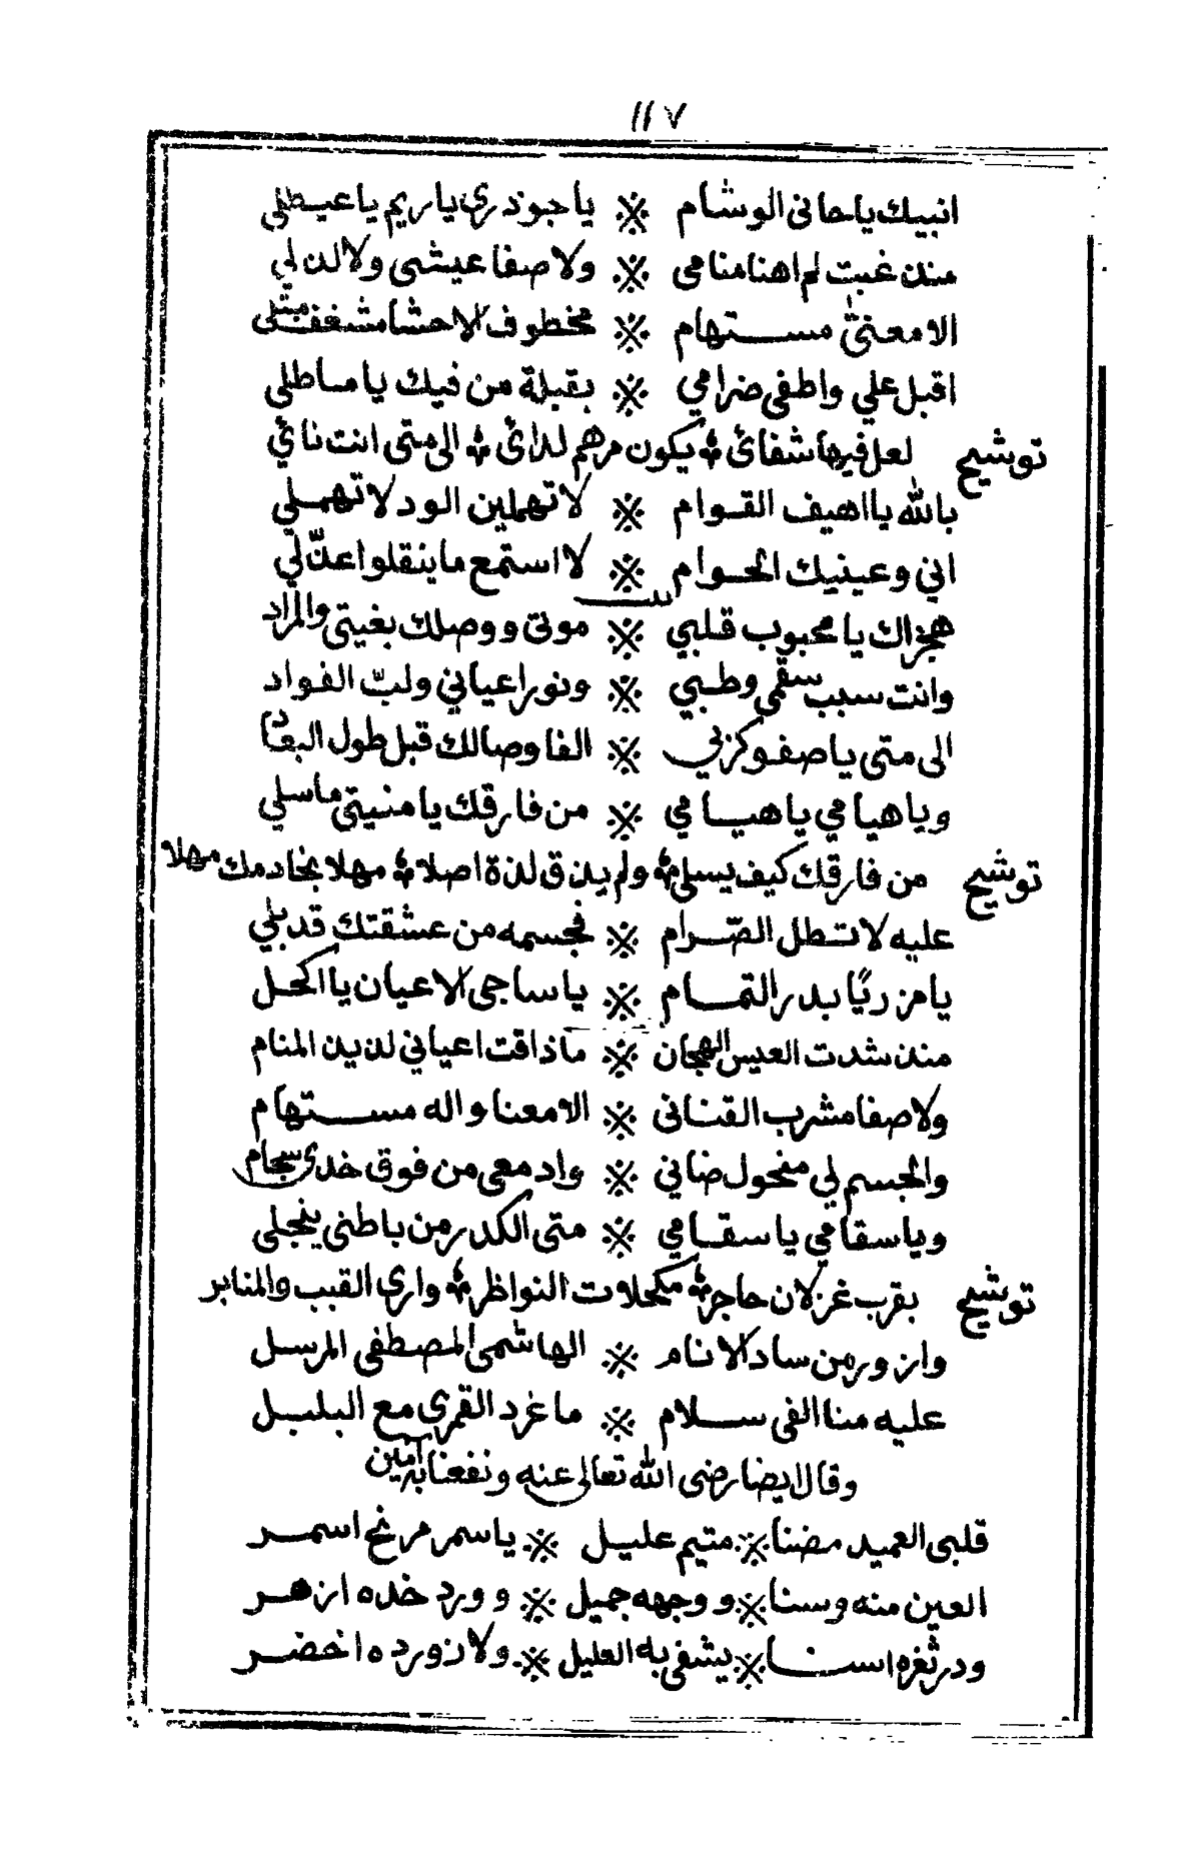 ١١٧
انبيك يا حانى الوشام ※ يا جوذري يا ريم يا عيطلي
منذ غبت لم اهنا منامى ※ ولا صفا عيشى ولا لذ لي
الا معنىّ مستهام ※ مخطوف الاحشا مشغف مثلى
اقبل علي واطفى ضرامي ※ بقبلة من فيك يا مماطلي
توشيح لعل فيها شفائ ؛ يكون مرهم لدائ ؛ الى متى انت نائي
بالله يا اهيف القوام ※ لا تهملين الود لا تهملي
اني وعينيك الحوام ※ لا استمع ما ينقلوا عذّلي
هجرانك يا محبوب قلبي ※ موتى ووصلك بغيتى والمراد
وانت سبب سقمى وطبي ※ ونور اعياني ولبّ الفواد
الى متى يا صفو كربي ※ الفا وصالك قبل طول البعاد
ويا هيامي يا هيامي ※ من فارقك يا منيتى ما سلي
توشيح من فارقك كيف يسلى ؛ ولم يذق لذة اصلا ؛ مهلا بخادمك مهلا
عليه لا تطل الصّرام ※ فجسمه من عشقتك قد بلي
يا من ريّا بدر التمام ※ يا ساجى الاعيان يا اكحل
منذ شدت العيس الهجان ※ ما ذاقت اعياني لذيذ المنام
ولا صفا مشرب القنانى ※ الا معنا واله مستهام
والجسم لي منحول ضاني ※ وادمعى من فوق خدى سجام
ويا سقامي يا سقامي ※ متى الكدر من باطنى ينجلى
توشيح بقرب غزلان حاجر ؛ مكحلات النواظر ؛ وارى القبب والمنابر
وازور من ساد الانام ※ الهاشمى المصطفى المرسل
عليه منا الفى سلام ※ ما غرد القمرى مع البلبل
وقال ايضا رضى الله تعالى عنه ونفعنا به آمين
قلبى العميد مضنا ※ متيم عليل ※ يا سمر مرنح اسمر
العين منه وسنا ※ ووجهه جميل ※ وورد خده ازهر
ودر ثغره اسنا ※ يشفى به العليل ※ ولازورده اخضر